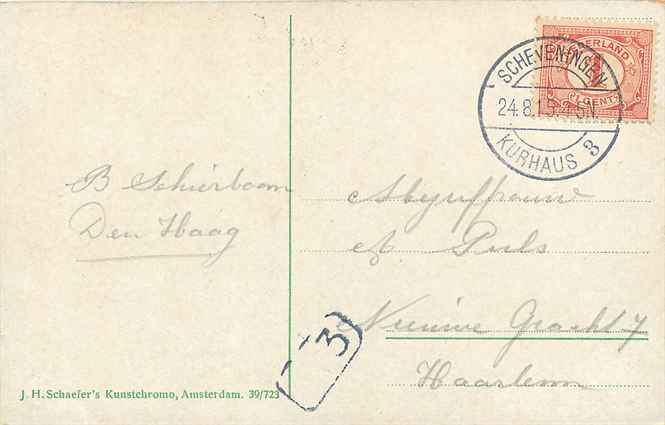 NEDERLAND
CENTS
SCHEVENINGEN
24.8.15. 4-5N
KURHAUS 3
B Schierboom
Den Haag
Mejuffrouw
A Puls
Nieuwe Gracht 7
Haarlem
3
J. H. Schaefer's Kunstchromo, Amsterdam. 39/723